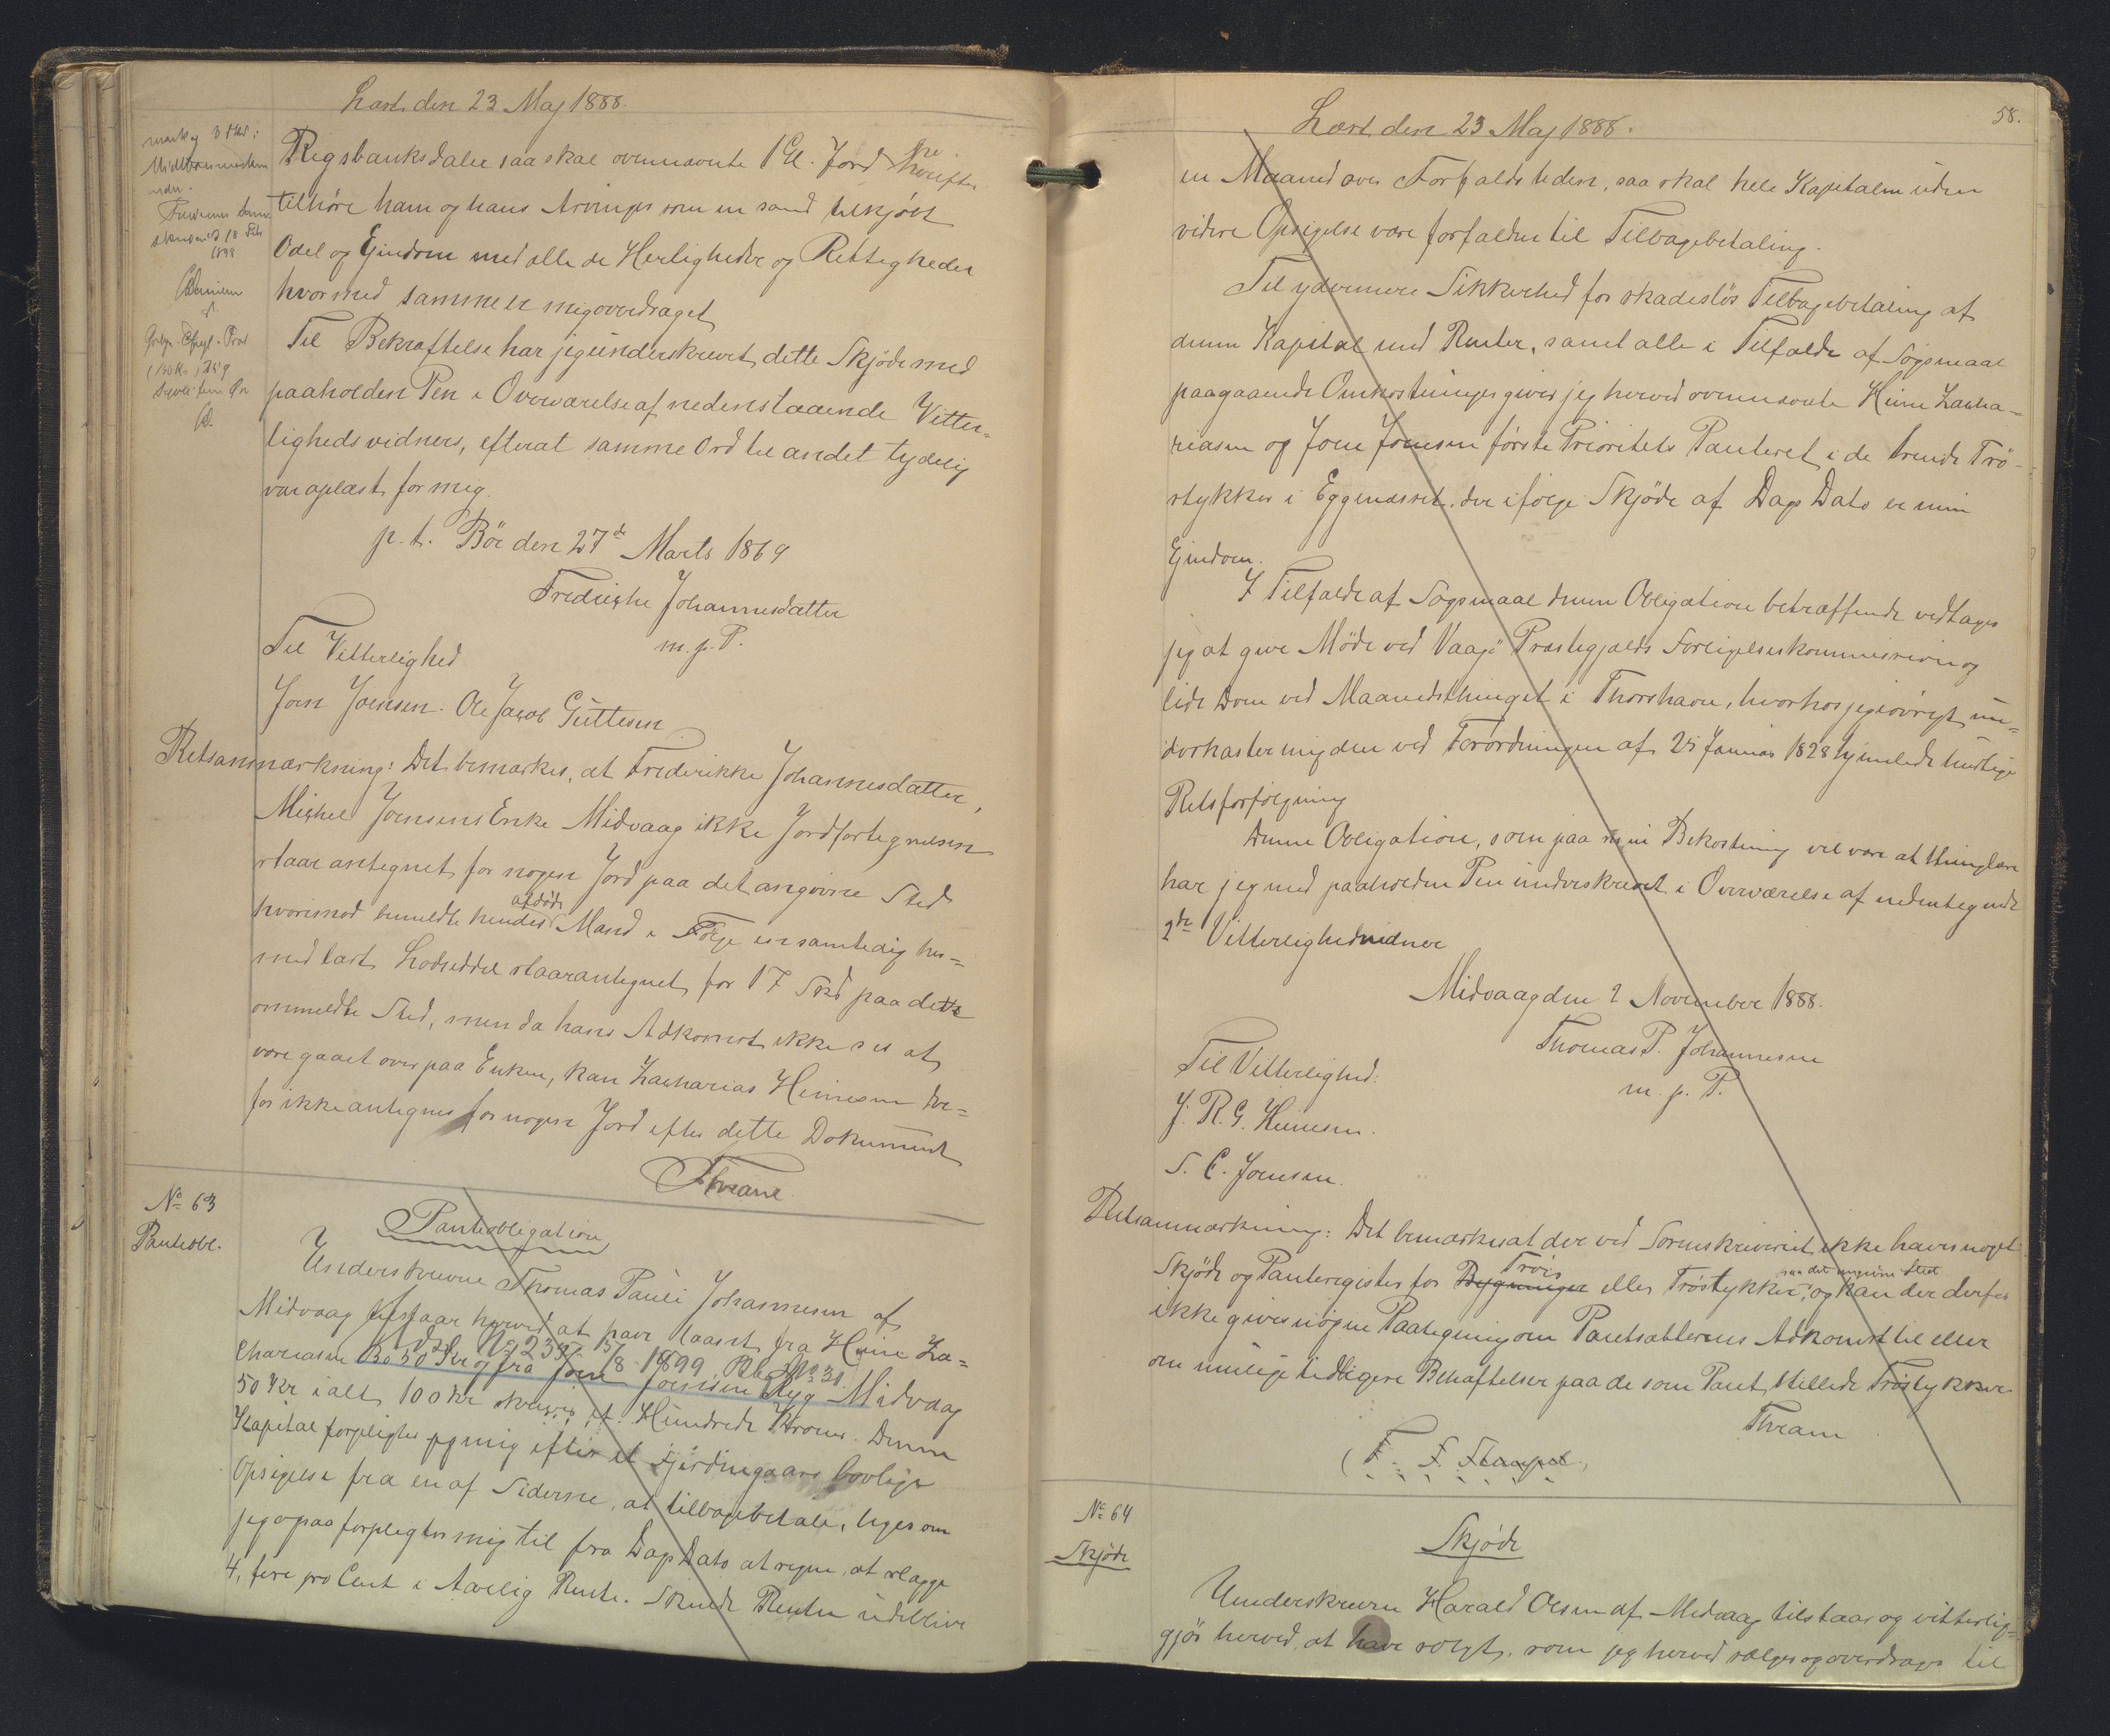 Læst den 23 Maj 1888.
Rigsbanksdaler saa skal ovennævnte 1 Gl. Jord herefter
tilhöre ham og hans Arvinger som en sand tilkjöbt
Odel og Ejendom med alle de Herligheder og Rettigheder
hvormed samme er mig overdraget
Til Bekræftelse har jeg underskrevet dette Skjöde med
paaholden Pen i Overværelse af nedenstaaende Vitter-
lighedsvidners, efterat samme Ord til andet tydelig
var oplæst for mig.
p. t. Bör den 27de Marts 1869
Frederikke Johannesdatter
m. p. P.
Til Vitterlighed
Joen Joensen. Ole Jacob Guttesen
Retsanmærkning: Det bemærkes, at Frederikke Johannesdatter,
Michel Joensens Enke Midvaag ikke Jordfortegnelsen
staar antegnet for nogen Jord paa det angivne Sted
hvorimod bemeldte hendes afdöde Mand i Fölge en samtidig her-
med læst Lodseddel staar antegnet for 17 Skd paa dette
ommeldte Sted, men da hans Adkomst ikke ses at
være gaaet over paa Enken, kan Zacharias Heinesen der-
for ikke antegnes for nogen Jord efter dette Dokument
Thrane
No 63
Panteobl.
Panteobligation
Underskrevne Thomas Pauli Johannesen af
Midvaag tilstaar herved at have laant fra Heine Za-
chariasen Bö 50 Kr og fra Joen Joensen Ryg Midvaag
50 Kr ialt 100 Kr skriver et Hundrede Kroner. Denne
Kapital forpligter jeg mig efter et Fjerdingaars lovlige
Opsigelse fra en af Siderne, at tilbagebetale, ligesom
jeg ogsaa forpligter mig til fra Dags Dato at regne, at erlægge
4, fire pro Cent i Aarlig Rente. Skulde Renten udeblive
58.
Læst den 23 Maj 1888.
en Maaned over Forfaldstiden, saa skal hele Kapitalen uden
videre Opsigelse være forfalden til Tilbagebetaling.
Til ydermere Sikkerhed for skadeslös Tilbagebetaling af
denne Kapital med Renter, samt alle i Tilfælde af Sögsmaal
paagaaende Omkostninger giver jeg herved ovennævnte Heine Zacha-
riasen og Joen Joensen förste Prioritets Panteret i de trende Trö-
stykker i Eggmarset, der ifölge Skjöde af Dags Dato er min
Ejendom.
I Tilfælde af Sögsmaal denne Obligation betræffende vedtager
jeg at give Möde ved Vaagö Præstegjælds Forligelseskommission og
lide Dom ved Maanedsthinget i Thorshavn, hvorhos jeg iövrigt un-
derkaster mig den ved Forordningen af 25 Januar 1828 hjemlede hurtige
Retsforfölgning
Denne Obligation, som paa min Bekostning vil være at thinglæse
har jeg med paaholden Pen underskrevet i Overværelse af nedentegnede
2de Vitterlighedsvidner
Midvaag den 2 November 1888.
Thomas P. Johannesen
m. p. P.
Til Vitterlighed:
J. R. G. Heinesen.
S. C. Joensen.
Retsanmærkning: Det bemærkes at der ved Sorenskriveriet ikke haves noget
Skjöde og Panteregister for Bygninger Tröis eller Tröstykker paa det angivne Sted, og kan der derfor
ikke gives nogen Paategning om Pantsætterens Adkomst til eller
om mulige tidligere Behæftelser paa de som Pant stillede Tröstykker.
Thrane
No 64
Skjöde
Skjöde
Underskrevne Harald Olsen af Midvaag tilstaar og vitterlig-
gjör herved, at have solgt, som jeg herved sælger og overdrager til